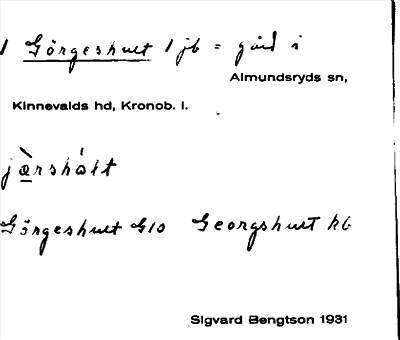 1 Görgeshult 1 jb = gård i
Almundsryds sn,
Kinnevalds hd, Kronob. l.
jàrshált
Görgeshult G10 Georgshult kb
Sigvard Bengtson 1931